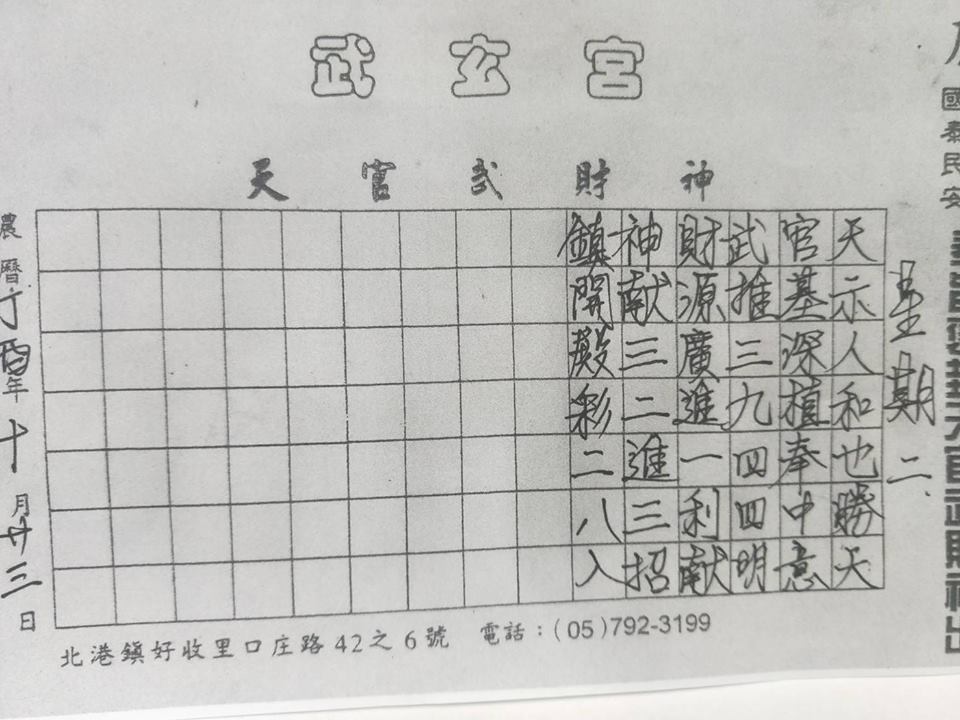 武玄宮
天官武財神
國泰民安
星期二
天示人和也勝天
官基深植奉中意
武推三九四四明
財源廣進一利献
神献三二進三招
鎮開殿彩二八入
農曆丁酉年十月廿三日
北港鎮好收里口庄路42之6號 電話：(05)792-3199